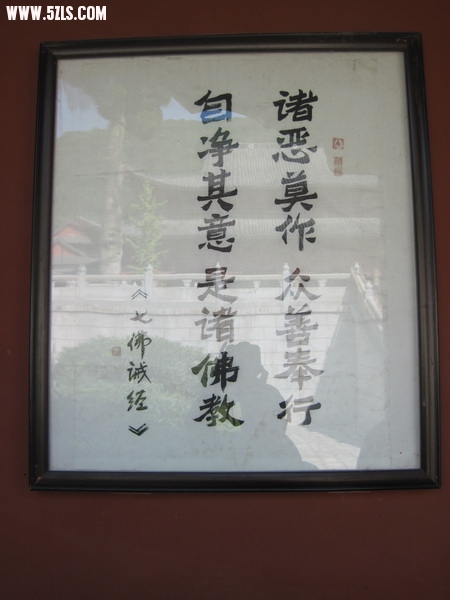 WWW.5ZLS.COM
诸恶莫作 众善奉行
自净其意 是诸佛教
《七佛诫经》